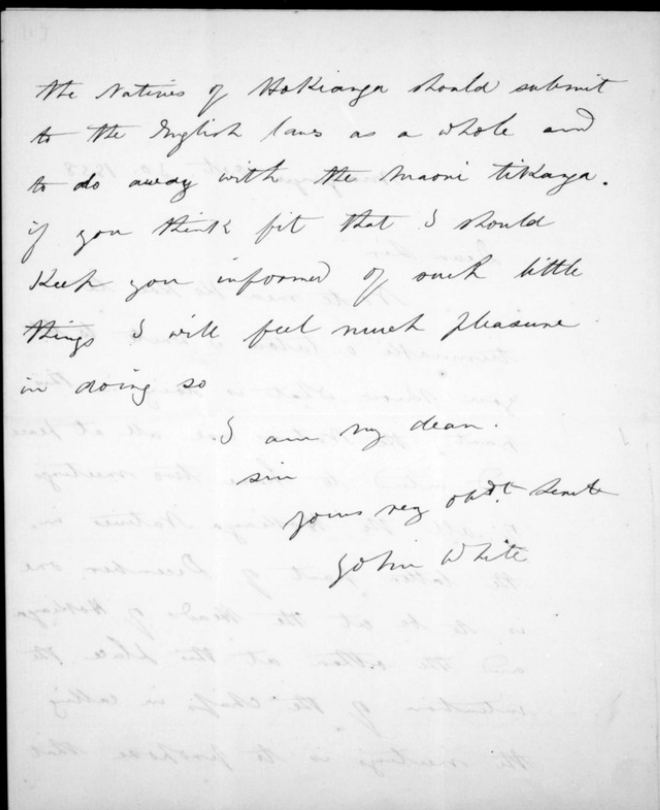 the Natives of Hokianga should submit
to the English laws as a whole and
to do away with the Maori tikanga.
if you think fit that I should
Keep you informed of such little
things I will feel much pleasure
in doing so
I am my dear.
sir
yours very obdt. Servt
John White